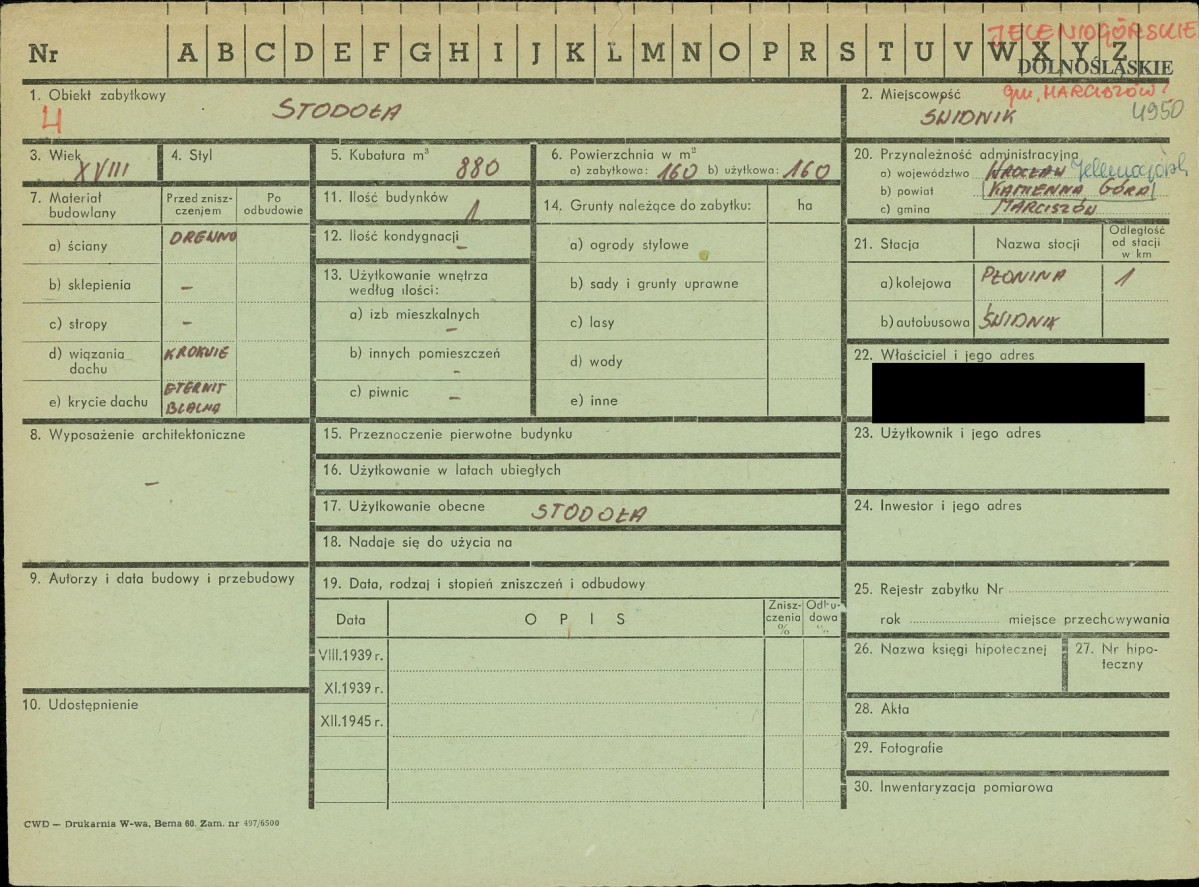 Nr A B C D E F G H I J K L M N O P R S T U V W X Y Z
JELENIOGÓRSKIE
DOLNOŚLĄSKIE
gm. MARCISZÓW
4950
1. Obiekt zabytkowy
4
STODOŁA
2. Miejscowość
ŚWIDNIK
3. Wiek
XVIII
4. Styl
5. Kubatura m³
880
6. Powierzchnia w m²
a) zabytkowa: 160 b) użytkowa: 160
20. Przynależność administracyjna
a) województwo WROCŁAW
b) powiat KAMIENNA GÓRA
c) gmina MARCISZÓW
7. Materiał budowlany
Przed znisz-
czeniem
Po
odbudowie
a) ściany DREWNO
b) sklepienia –
c) stropy –
d) wiązania
dachu
KROKWIE
e) krycie dachu
ETERNIT
BLACHA
8. Wyposażenie architektoniczne
–
9. Autorzy i data budowy i przebudowy
10. Udostępnienie
11. Ilość budynków
1
12. Ilość kondygnacji
–
13. Użytkowanie wnętrza
według ilości:
a) izb mieszkalnych
–
b) innych pomieszczeń
–
c) piwnic –
14. Grunty należące do zabytku: ha
a) ogrody stylowe
b) sady i grunty uprawne
c) lasy
d) wody
e) inne
15. Przeznaczenie pierwotne budynku
16. Użytkowanie w latach ubiegłych
17. Użytkowanie obecne STODOŁA
18. Nadaje się do użycia na
19. Data, rodzaj i stopień zniszczeń i odbudowy
Data
OPIS
Znisz-
czenia
%
Odbu-
dowa
%
VIII.1939 r.
XI.1939 r.
XII.1945 r.
21. Stacja
Nazwa stacji
Odległość
od stacji
w km
a) kolejowa PŁONINA 1
b) autobusowa ŚWIDNIK
22. Właściciel i jego adres
23. Użytkownik i jego adres
24. Inwestor i jego adres
25. Rejestr zabytku Nr
rok miejsce przechowywania
26. Nazwa księgi hipotecznej
27. Nr hipo-
teczny
28. Akta
29. Fotografie
30. Inwentaryzacja pomiarowa
CWD — Drukarnia W-wa, Bema 60. Zam. nr 497/6500